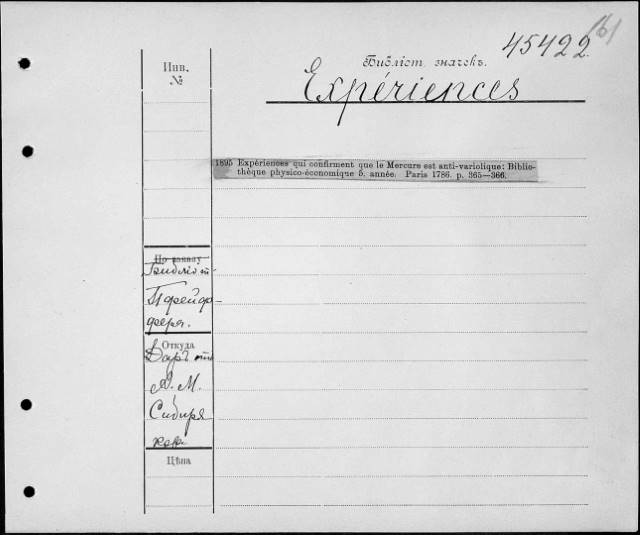 45422
Библіот. значекъ.
Expériences
Инв.
№
1895 Expériences qui confirment que le Mercure est anti-variolique: Biblio-
thèque physico-économique 5. année. Paris 1786. p. 365—366.
По заказу
Библіот
Пфейф-
фера.
Откуда
Даръ отъ
А. М.
Сибиря
кова
Цѣна